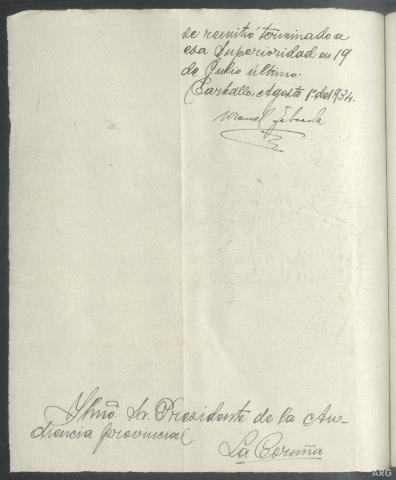 se remitió terminado a
esa Superioridad en 19
de Julio último.
Carballo, Agosto 1º de 1934.
Manuel
Ylmo. Sr. Presidente de la Au-
diencia provincial
La Coruña
ARG